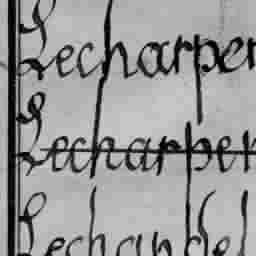 Lecharpen
Lecharpen
Lechandel